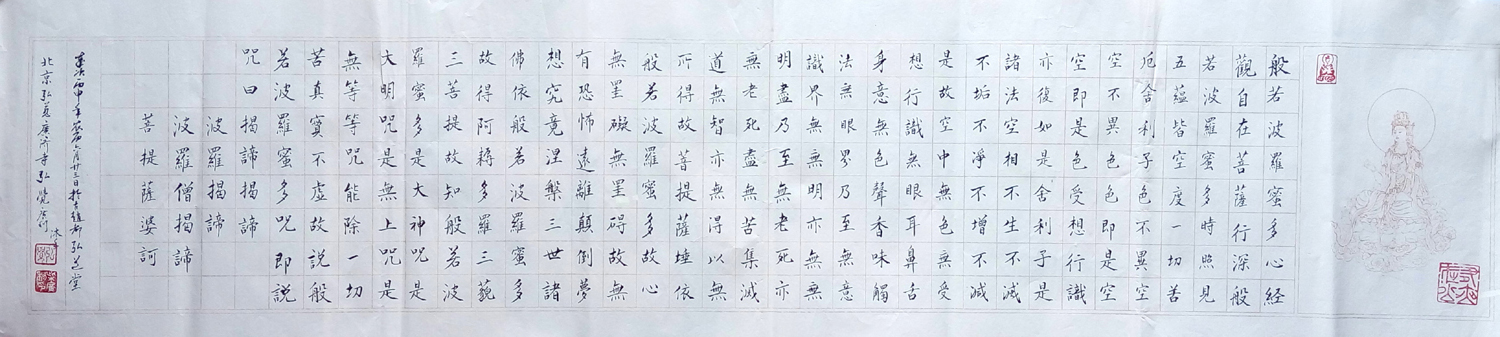 般若波羅蜜多心経
觀自在菩薩行深般
若波羅蜜多時照見
五蘊皆空度一切苦
厄舍利子色不異空
空不異色色即是空
空即是色受想行識
亦復如是舍利子是
諸法空相不生不滅
不垢不淨不增不減
是故空中無色無受
想行識無眼耳鼻舌
身意無色聲香味觸
法無眼界乃至無意
識界無無明亦無無
明盡乃至無老死亦
無老死盡無苦集滅
道無智亦無得以無
所得故菩提薩埵依
般若波羅蜜多故心
無罣礙無罣碍故無
有恐怖遠離顛倒夢
想究竟涅槃三世諸
佛依般若波羅蜜多
故得阿耨多羅三藐
三菩提故知般若波
羅蜜多是大神咒是
大明咒是無上咒是
無等等咒能除一切
苦真實不虛故説般
若波羅蜜多咒即説
咒曰揭諦揭諦
波羅揭諦
波羅僧揭諦
菩提薩婆訶
歲次丙申年八月廿三日於弘芝堂
北京弘慈廣济寺弘覺
沐手